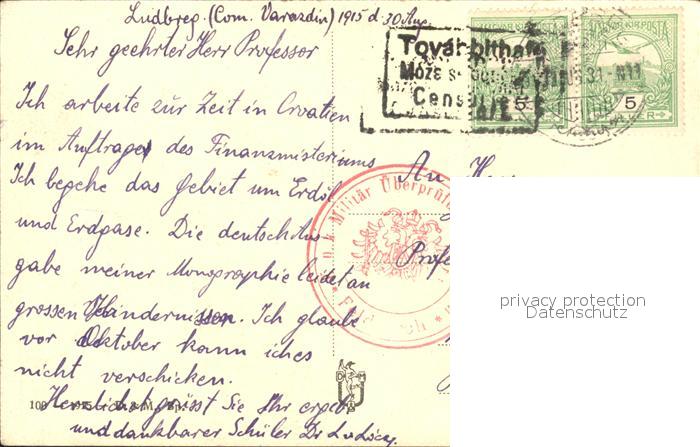 Ludbreg. (Com. Varazdin) 1915 d. 30 Aug.
Sehr geehrter Herr Professor
Ich arbeite zur Zeit in Croatien
im Auftrage des Finanzministeriums
Ich begehe das Gebiet um Erdöl
und Erdgase. Die deutsche Aus-
gabe meiner Monographie leidet an
grossen Hindernissen. Ich glaube
vor Oktober kann ich es
nicht verschicken.
Herzlichst grüsst Sie Ihr ergeb.
und dankbarer Schüler Dr
An Herrn
Profes
Továbbítható
Može se
Censura
MAGYAR KIR. POSTA
5
5
Militär Überprüfu
privacy protection
Datenschutz